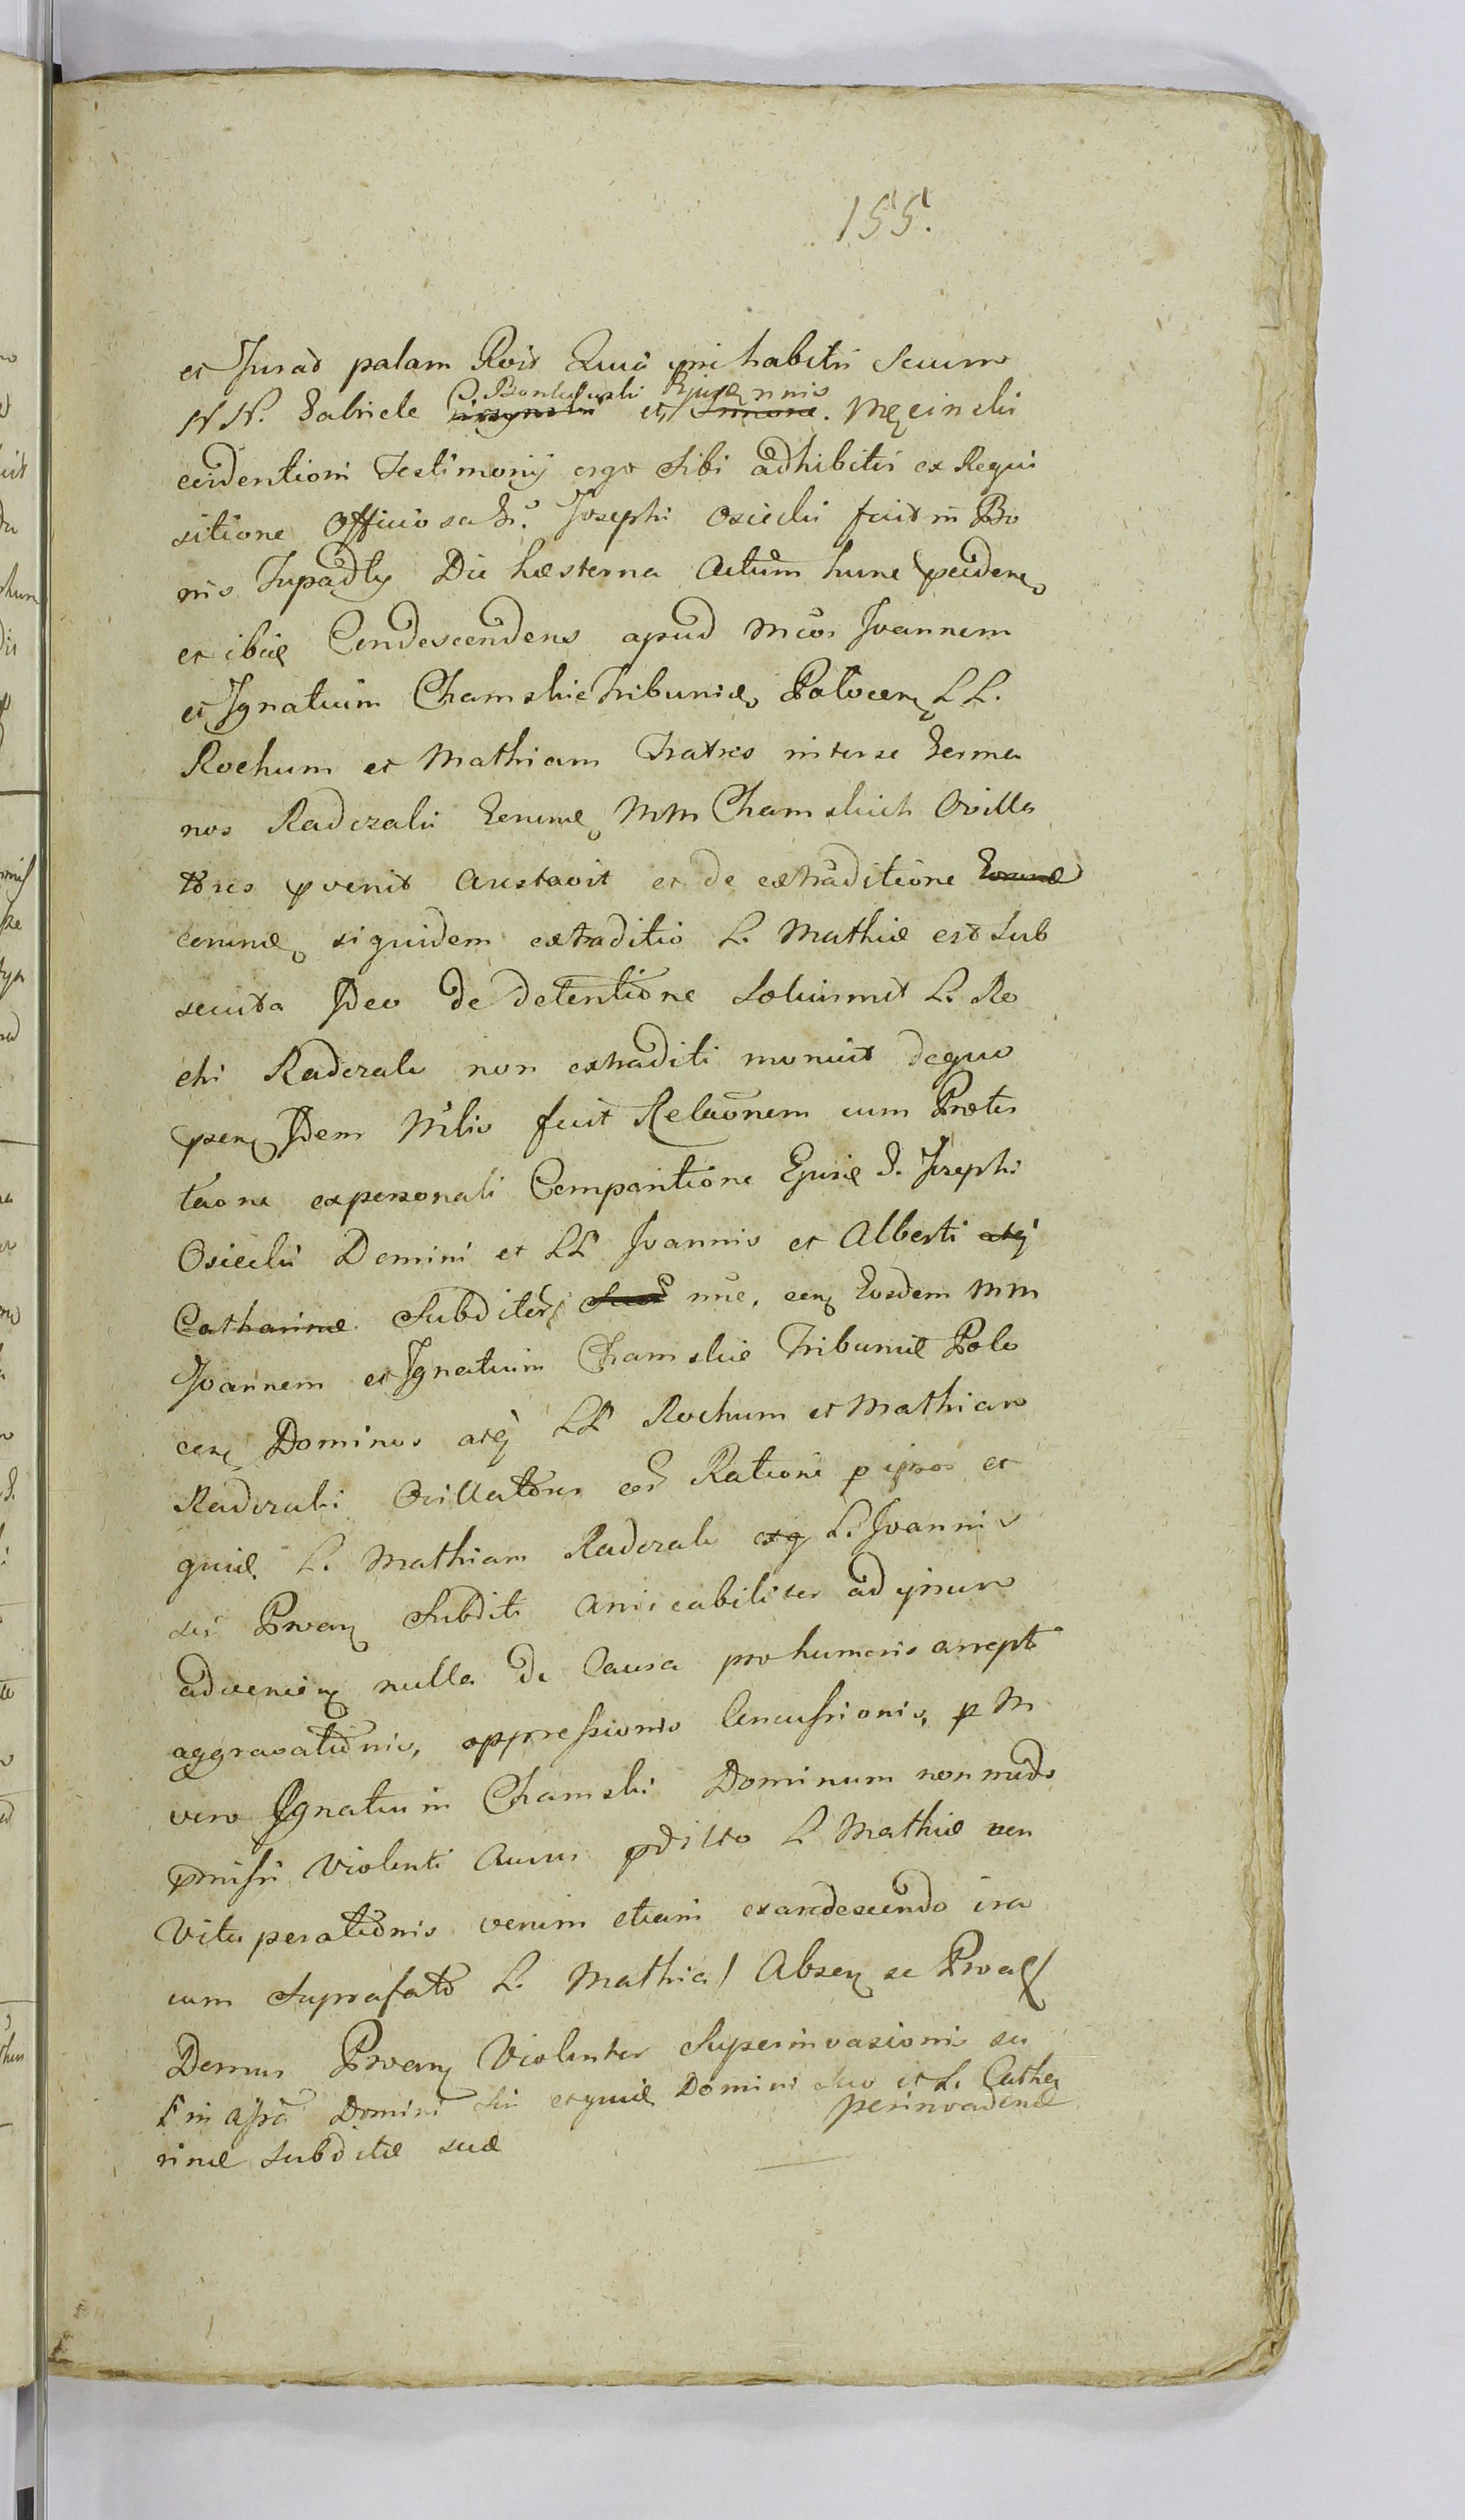 155.
et Jurad palam Roit Quia ipse habitis Secum
C. Bontkowski Ejusdē nnis
NN. Gabriele et Simone. Męcinski
evidentiori Testimonij ergo Sibi adhibitis ex Requi
sitione Officiosa G. Josephi Osiecki fuit in Bo
nis Tupadły Die hæsterna Actum hunc pcedene
et ibiæ Condescendens apud Mcos Joannem
et Ignatium Chamskie Tribunid Polocen LL.
Rochum et Mathiam Fratres inter se Germa
nos Radczaki Eorumd MM Chamskich Ovilla
tores pvenit Arestavit et de extraditione Eorund
eorund siquidem extraditio L. Mathiæ est Sub
secuta Ideo de detentione Solummt L. Ro
chi Radczak non extraditi monuit dequo
psen Idem Mtlis fecit Relaōnem cum Protes
taōne expersonali Comparitione Ejusd G. Josephi
Osiecki Domini et LL Joannis et Alberti atq
Catharinæ Subditor nūc, cen Eosdem MM
Joannem et Ignatium Chamskie Tribunid Polo
cen Dominos atq LL Rochum et Mathiam
Radczaki Ovillatores eō Ratione p ipsos et
quid L. Mathiam Radczak exq L. Joannis
sui Proten Subditi amicabiliter ad ipsum
advenien nulla de Causa pro humeris arrepto
aggravationis, oppressionis Concussionis, p M
vero Ignatium Chamski Dominum non modo
pmissi Violenti Ausus pdicto L Mathiæ non
Vituperationis verum etiam exardescendo ira
cum Suprafato L. Mathia / Absen se Proa /
Domus Proten Violenter Superinvasionis su
perinvadend
F in apra Domini sui et quid Domini suo et L. Catha
rinæ Subditæ suæ